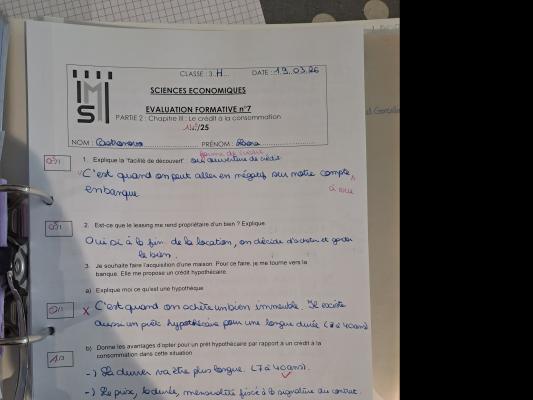 CLASSE : 3.H... DATE : 19.03.26
IMS
SCIENCES ECONOMIQUES
EVALUATION FORMATIVE n°7
PARTIE 2 : Chapitre III : Le crédit à la consommation
/25
NOM : PRÉNOM :
forme de crédit
0,5/1 1. Explique la "facilité de découvert" ou ouverture de crédit
C'est quand on peut aller en négatif sur notre compte
à vue
en banque
0,5/1 2. Est-ce que le leasing me rend propriétaire d'un bien ? Explique.
Oui si à la fin de la location, on décide d'acheter et garder
le bien.
3. Je souhaite faire l'acquisition d'une maison. Pour ce faire, je me tourne vers la
banque. Elle me propose un crédit hypothécaire.
a) Explique moi ce qu'est une hypothèque
0/1 X C'est quand on achète un bien immeuble. Il existe
aussi un prêt hypothécaire pour une longue durée (7 à 40ans)
b) Donne les avantages d'opter pour un prêt hypothécaire par rapport à un crédit à la
consommation dans cette situation
-) La durée va être plus longue. (7 à 40ans).
-) Le prix, la durée, mensualité fixé à la signature du contrat.